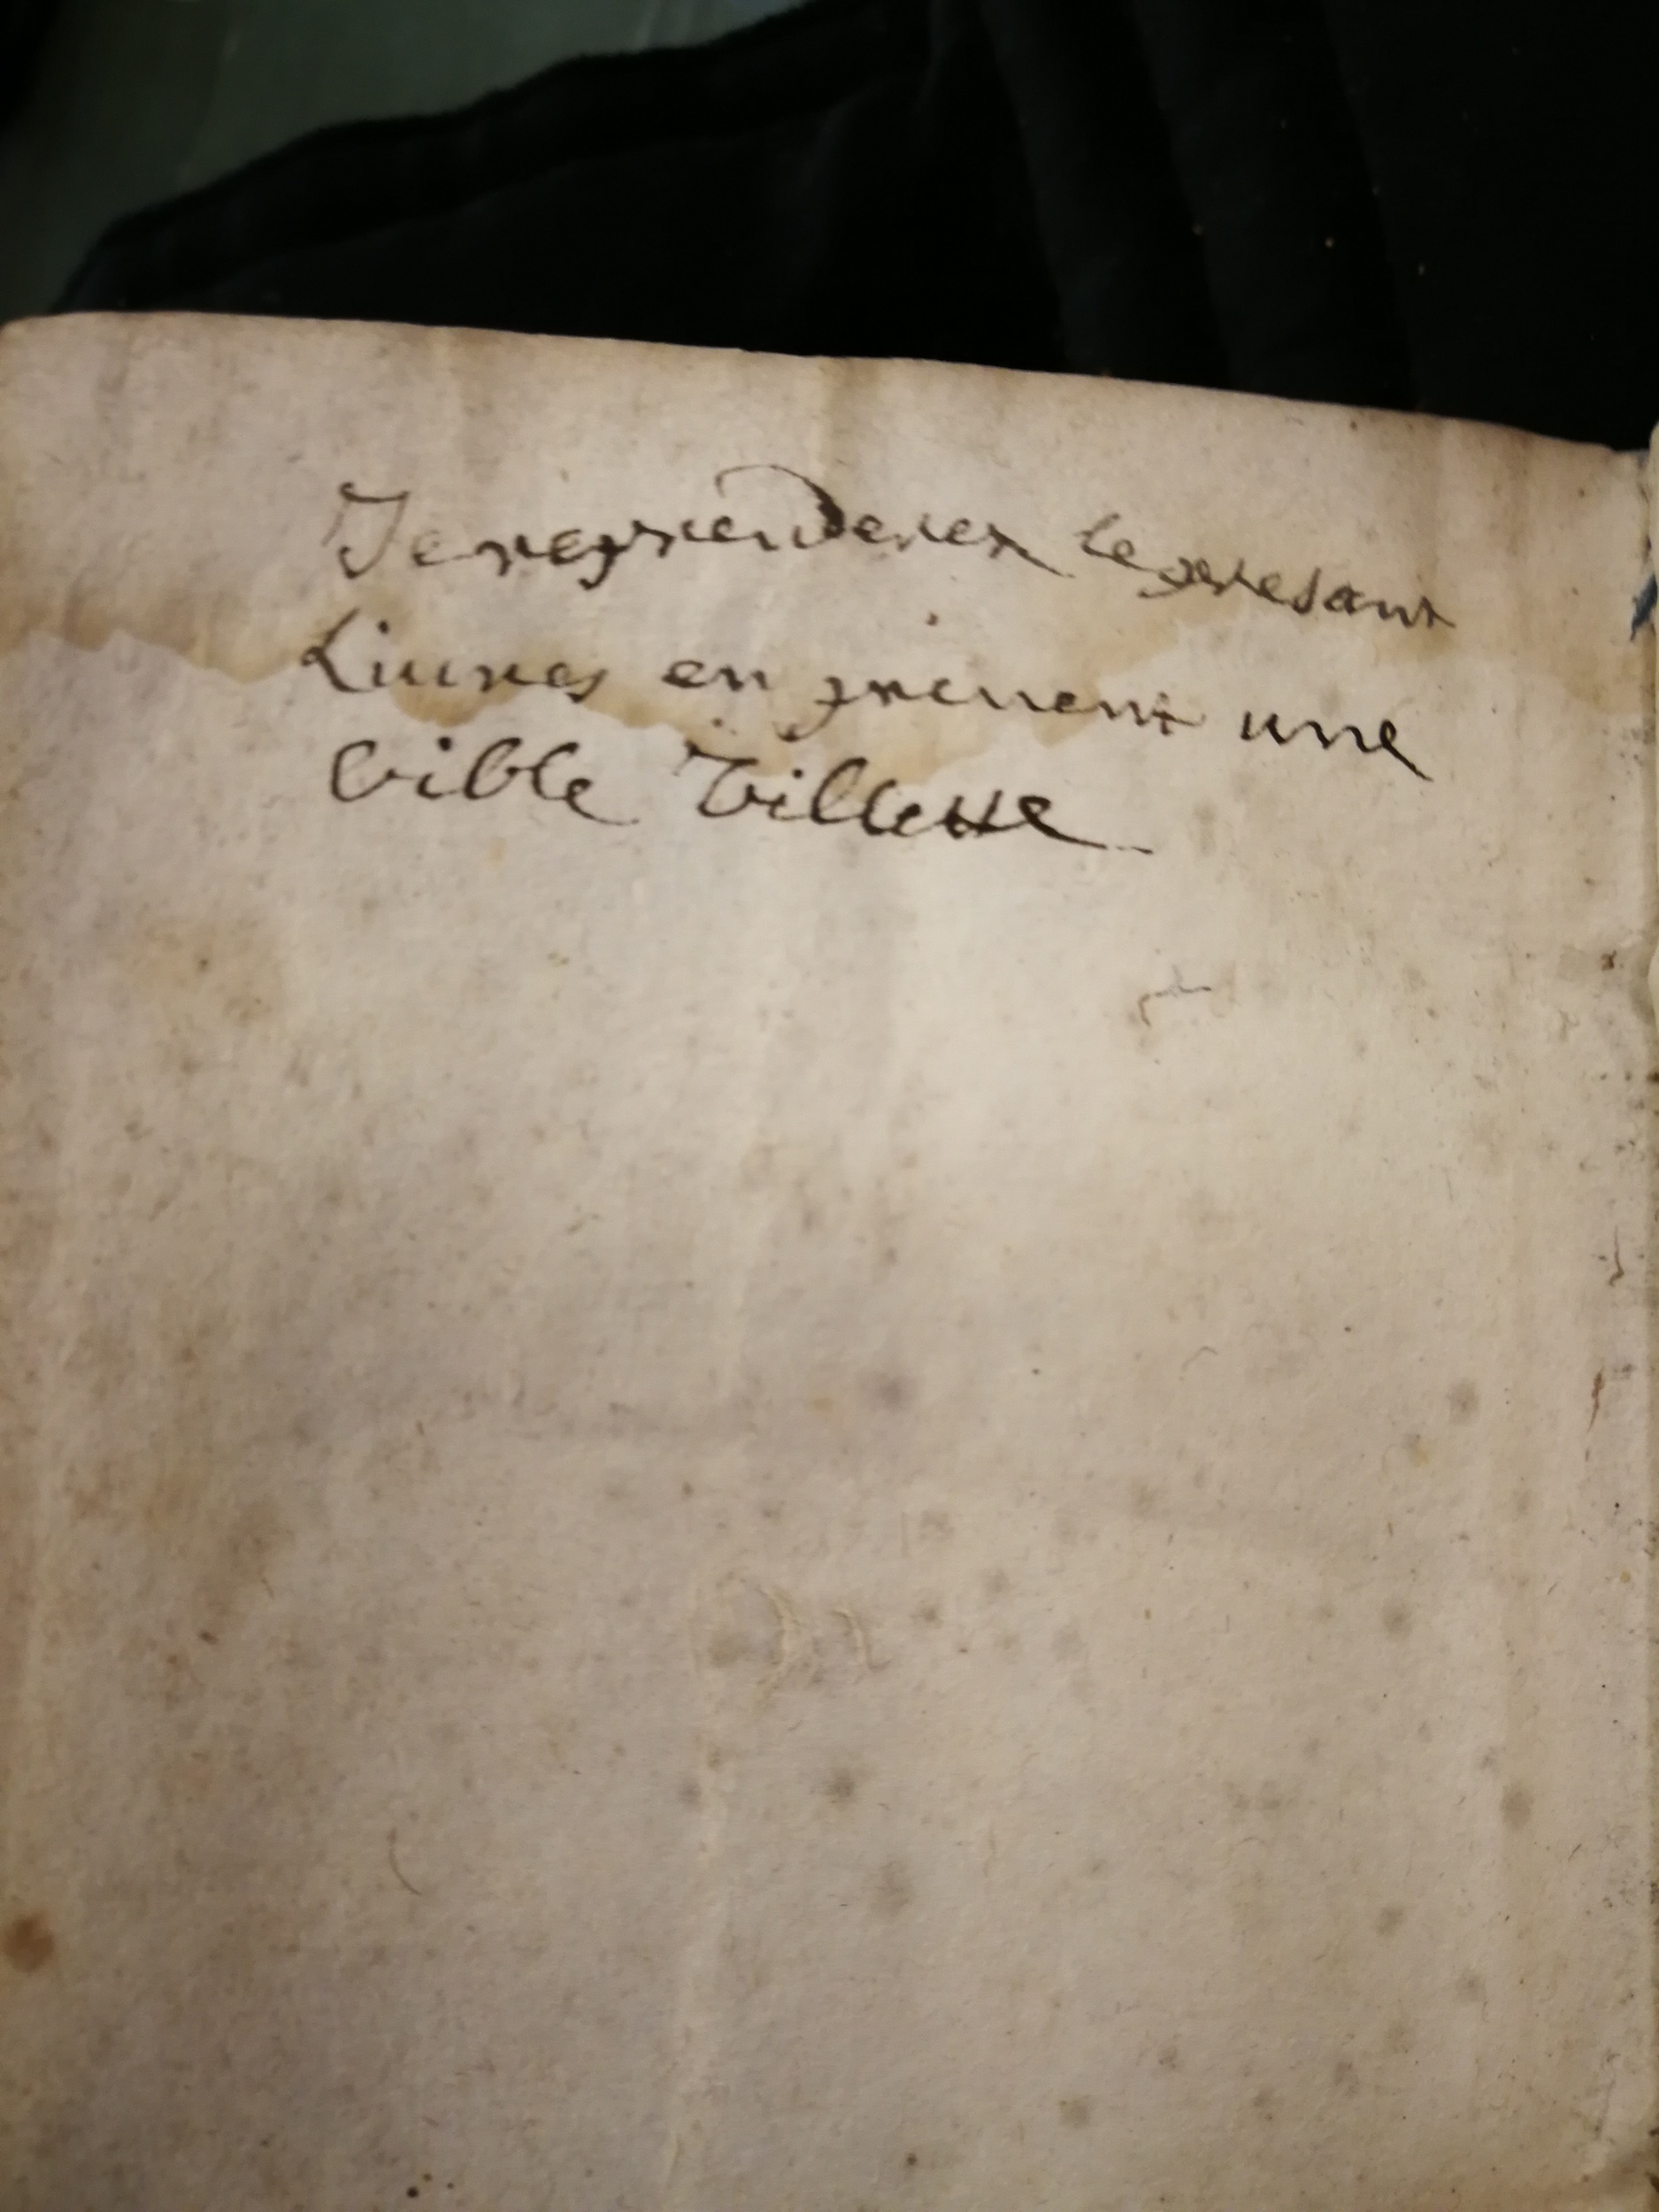 Je reprenderer le presant
Liures en prenent une
bible Villette